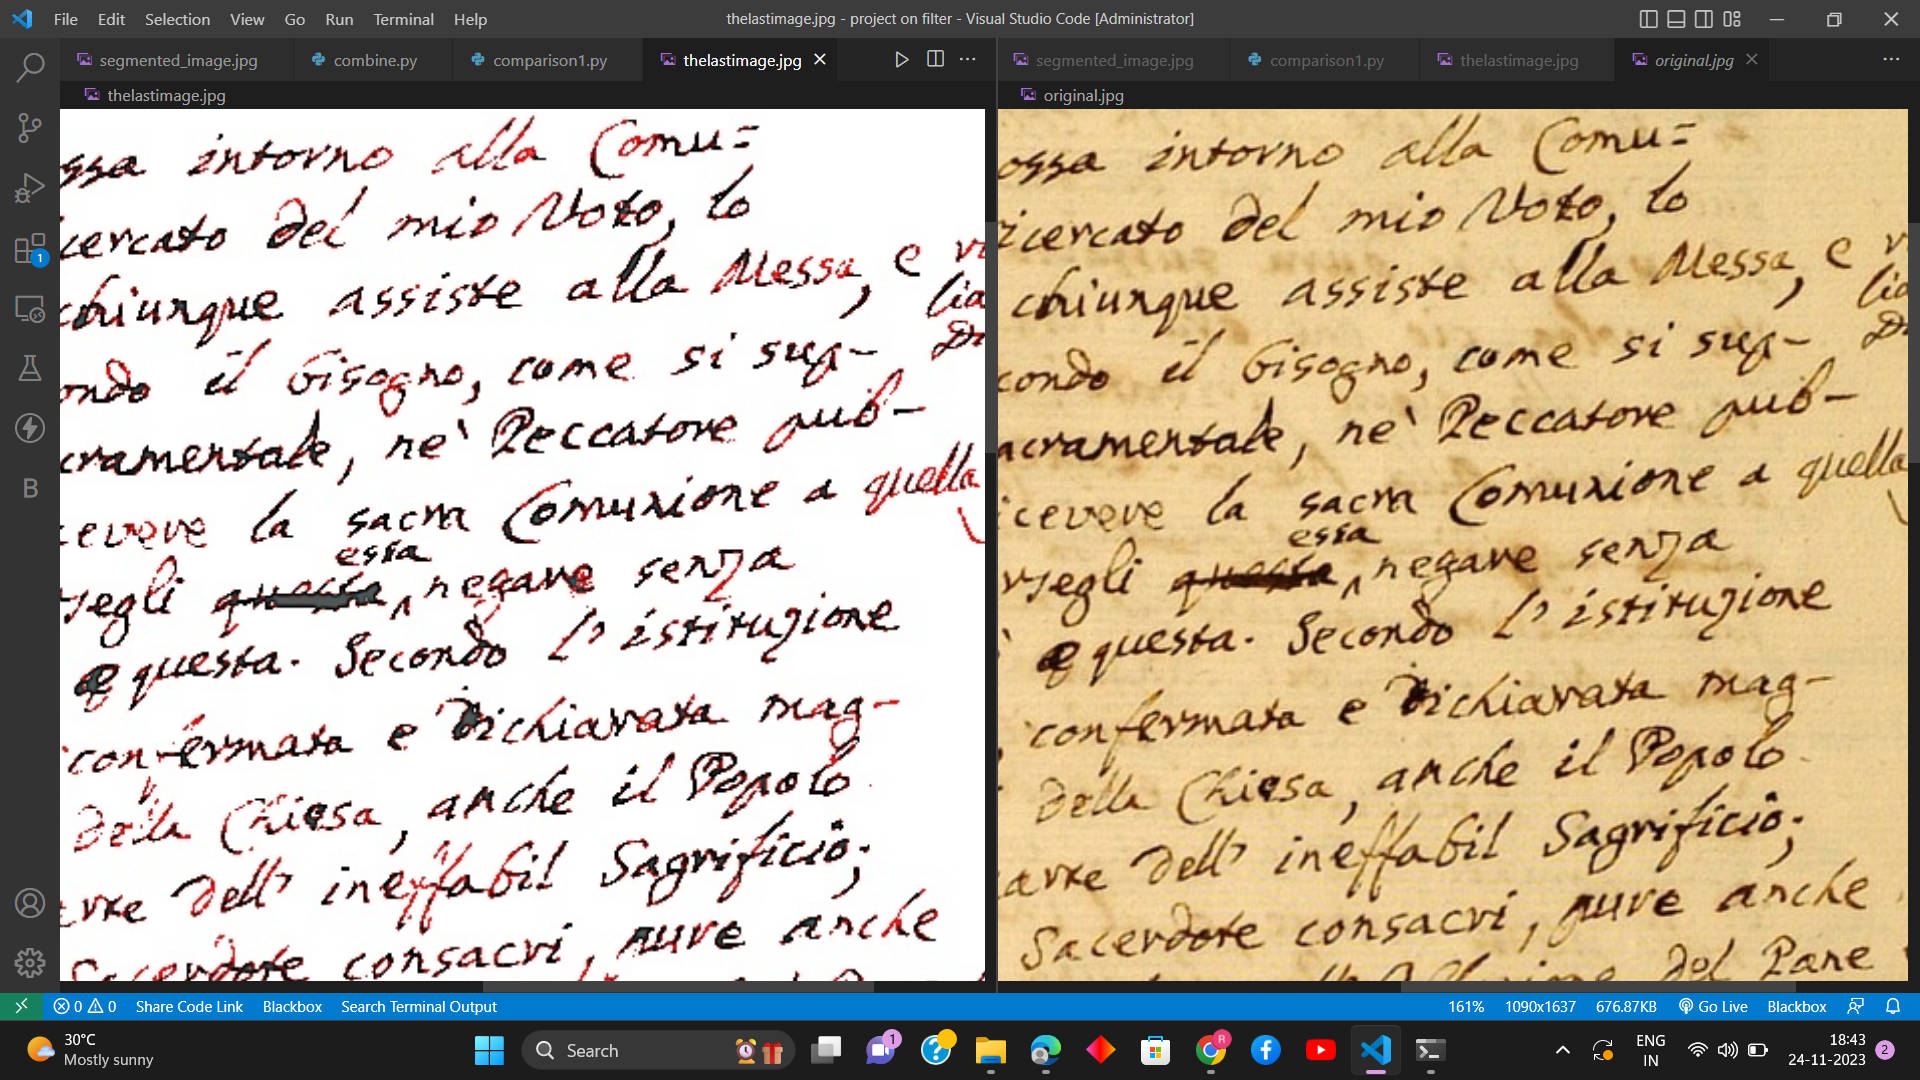 File Edit Selection View Go Run Terminal Help
thelastimage.jpg - project on filter - Visual Studio Code [Administrator]
segmented_image.jpg combine.py comparison1.py thelastimage.jpg
segmented_image.jpg comparison1.py thelastimage.jpg original.jpg
thelastimage.jpg
ssa intorno alla Comu=
icercato del mio Voto, lo
chiunque assiste alla Messa, e
ondo il bisogno, come si sup-
cramentale, ne' Peccatore pub-
ceveve la sacra Comunione a quella
essa
segli questa ^ negare senza
e questa. Secondo l' istituzione
confermata e dichiarata mag-
della Chiesa, anche il Popolo
dell' ineffabil Sagrificio;
Sacerdote consacri, pure anche
original.jpg
ossa intorno alla Comu=
icercato del mio Voto, lo
chiunque assiste alla Messa, e
condo il bisogno, come si sup-
acramentale, ne' Peccatore pub-
iceveve la sacra Comunione a quella
essa
segli questa ^ negare senza
e questa. Secondo l' istituzione
confermata e dichiarata mag-
della Chiesa, anche il Popolo
dell' ineffabil Sagrificio;
Sacerdote consacri, pure anche
del Pane
1
B
0 0 Share Code Link Blackbox Search Terminal Output
161% 1090x1637 676.87KB Go Live Blackbox
30°C
Mostly sunny
Search
1
R
ENG
IN
18:43
24-11-2023
2